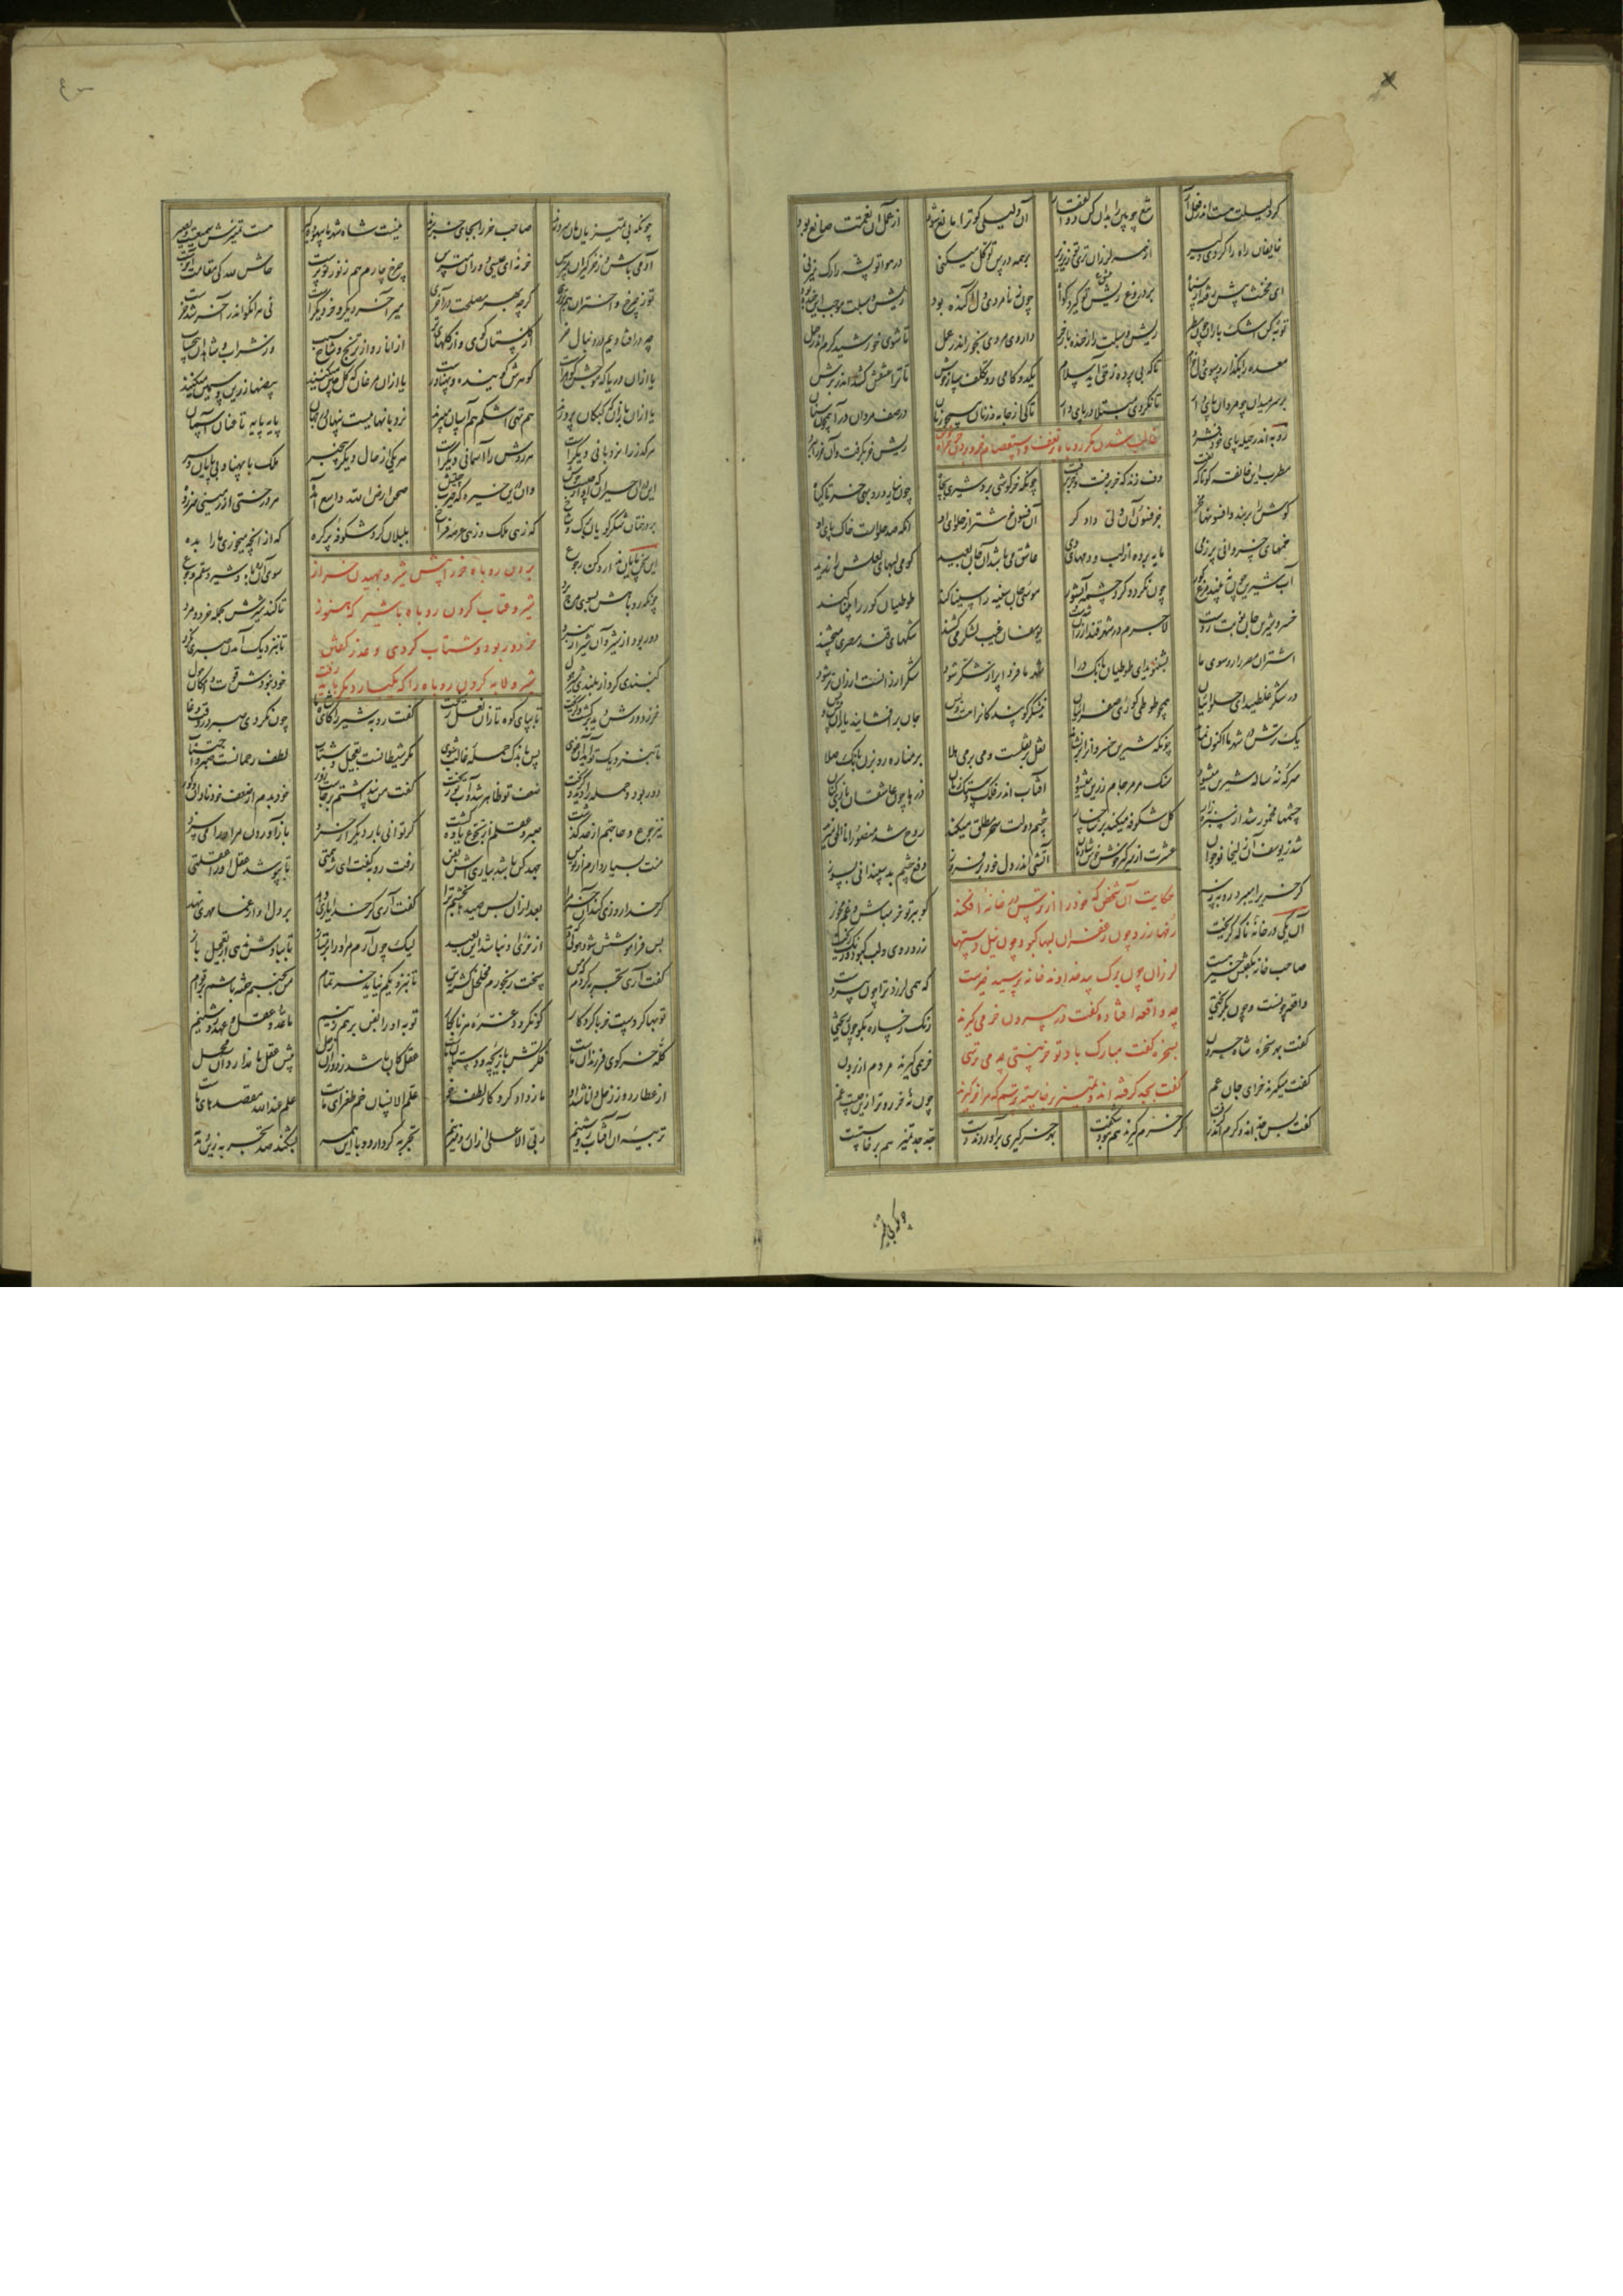 گر دلیلت هست اندر فعل آر تیغ چوبین را بدان کن ذوالفقار آن دلیلی کو ترا مانع شود از عمل آن نقمت صانع بود
خایفان راه را کردی دلیر از همه لرزان تری تو زیر زیر بر همه درس توکل میکنی در هوا تو پشه را رگ میزنی
ای مخنث پیش رفته از سپاه بر دروغ ریش تو کیرت گواه چون ز نامردی دل آکنده بود ریش و سبلت موجب خنده بود
توبه کن اشک باران چون مطر ریش و سبلت را ز خنده باز خر داروی مردی بخور اندر عمل تا شوی خورشید گرم اندر حمل
معده را بگذار و سوی دل خرام تا که بی پرده ز حق آید سلام یکدو گامی رو تکلف ساز خوش تا ترا عشقش کشد اندر برش
بر سر میدان چو مردان پای دار تا نگردی مبتلا در پای دار تا کی از جامه زنان همچون زنان در صف مردان درآ همچون سنان
غالب شدن مکر روباه بر تعفف و استعصام خر و بردن خر را
روبه اندر حیله پای خود فشرد ریش خر بگرفت و آن خر را ببرد
مطرب این خانقه کو تا که تفت دف زند که خر برفت و خر برفت چونکه خرگوشی برد شیری بچاه چون نیارد روبهی خر تا گیاه
گوش را بربند و افسونها مخر جز فسون آن ولی دادگر آن فسون خوشتر از حلوای او آنکه صد حلواست خاک پای او
خمهای خسروانی پر ز می مایه برده از لب و دمهای وی عاشق می باشد آن جان بعید کو می لبهای لعلش را ندید
آب شیرین چون نبیند مرغ کور چون نگردد گرد چشمه آب شور موسی جان سینه را سینا کند طوطیان کور را بینا کند
خسرو شیرین جان نوبت زدست لاجرم در شهر قند ارزان شدست یوسفان غیب لشکر می کشند تنگهای قند مصری میچشند
اشتران مصر را رو سوی ما بشنوید ای طوطیان بانگ درا شهر ما فردا پر از شکر شود شکر ارزانست ارزان تر شود
در شکر غلطید ای حلوائیان همچو طوطی کوری صفرائیان نیشکر کوبید کار اینست و بس جان برافشانید یار اینست و بس
یک ترش در شهر ما اکنون نماند چونکه شیرین خسروان را برنشاند نقل بر نقلست و می بر می هلا بر مناره رو بزن بانگ صلا
سرکه نه ساله شیرین میشود سنگ مرمر جام زرین میشود آفتاب اندر فلک دستک زنان ذرها چون عاشقان بازی کنان
چشمها مخمور شد از سبزه زار گل شکوفه میکند بر شاخسار چشم دولت سحر مطلق میکند روح شد منصور انا الحق میزند
شد ز یوسف آن زلیخا نوجوان عشرت از سر گیر خوش خوش شادمان آتشی اندر دل خود برفروز دفع چشم بد سپندانی بسوز
گر خری را میبرد روبه ز سر گو ببر تو خر مباش و غم مخور
حکایت آن شخص که خود را از ترس در خانه افکند
رخها زرد چون زعفران لبها کبود چون نیل دستها
لرزان چون برگ بید خداوند خانه پرسید خیرست
چه واقعه افتاده گفت در بیرون خر می گیرند
بسخره گفت مبارک باد تو خر نیستی چه می ترسی
گفت بجد گرفته اند و تمییز برخاسته ترسم که مرا خر گیرند
آن یکی در خانه ناگه گریخت زرد روی و لب کبود و رنگ ریخت
صاحب خانه بگفتش خیر هست که همی لرزد ترا چون پیر دست
واقعه چونست و چون بگریختی رنگ رخساره بگو چون ریختی
گفت بهر سخره شاه حرون خر همی گیرند مردم از برون
گفت میگیرند خر ای جان عم چون نه خر رو ترا زین چیست غم
گفت بس جدند و گرم اندر گرفت گر خرم گیرند هم نبود شگفت بهر خرگیری برآوردند دست جد جد تمییز هم برخاستست
چونکه بی تمییز
چونکه بی تمییزیان مان سرورند صاحب خر را بجای خر برند نیست شاه شهر ما بیهوده گیر هست تمییزش سمیعست و بصیر
آدمی باش و ز خرگیران مترس خر نه ای عیسی دوران مترس چرخ چارم هم ز نور تو پرست حاش لله که مقامت آخورست
تو ز چرخ و اختران هم برتری گرچه بهر مصلحت در آخوری میر آخر دیگر و خر دیگرست نی هر آنکو اندر آخر شد خرست
چه در افتادیم در دنبال خر از گلستان گوی و از گلهای تر از انار و از ترنج و شاخ سیب وز شراب و شاهدان بی حساب
یا از آن دریا که موجش گوهرست گوهرش گوینده و بیناورست یا از آن مرغان که گل چین میکنند بیضها زرین و سیمین میکنند
یا از آن بازان که کبکان پرورند هم نگون اشکم هم استان میپرند نردبانهاییست پنهان در جهان پایه پایه تا عنان آسمان
هر گره را نردبانی دیگرست هر روش را آسمانی دیگرست هر یکی از حال دیگر بیخبر ملک با پهنا و بی پایان و سر
صحن ارض الله واسع آمده هر درختی از زمینی سر زده
بر درختان شکر گویان برگ و شاخ که زهی ملک و زهی عرصه فراخ بلبلان گرد شکوفه پر گره که از آنچه میخوری ما را بده
این سخن پایان ندارد کن رجوع سوی آن روباه و شیر و سقم و جوع
بردن روباه خر را پیش شیر و جهیدن خر از
شیر و عتاب کردن روباه با شیر که هنوز
خر دور بود و شتاب کردی و عذر گفتن
شیر و لابه کردن روباه را که یکبار دیگر
چونکه روباهش بسوی مرج برد تا کند شیرش بحمله خرد و مرد
دور بود از شیر و آن شیر از نبرد تا بنزدیک آمدن صبری نکرد
گنبدی کرد از بلندی شیر هول خود نبودش قوت و امکان حول
خر ز دورش دید و برگشت و گریخت تا بپای کوه تازان نعل ریخت گفت روبه شیر را کای شاه ما چون نکردی صبر در وقت وغا
تا بنزدیک تو آید آن غوی تا باندک حمله غالب شوی مکر شیطانست تعجیل و شتاب لطف رحمانست صبر و احتساب
دور بود و حمله را دید و گریخت ضعف تو ظاهر شد و آب تو ریخت گفت من پنداشتم برجاست زور خود بدم از ضعف خود نادان و کور
نیز جوع و حاجتم از حد گذشت صبر و عقلم از تجوع یاوه گشت گر توانی بار دیگر از خرد باز آوردن مر او را می سزد
منت بسیار دارم از تو من جهد کن باشد بیاری اش بفن رفت روبه گفت ای شه همتی تا بپوشد عقل او را غفلتی
گفت آری گر خدا یاری دهد بر دل او از عما مهری نهد
پس فراموشش شود هولی که دید از خری او نباشد این بعید لیک چون آرم مر او را بر متاز تا ببادش ندهی از تعجیل باز
گفت آری تجربه کردم که من سخت رنجورم مخلخل گشته تن تا بنزدیکم نیاید خر تمام من نجنبم خفته باشم در قوام
توبها کردست خر با کردگار کو نگردد غره هر نابکار توبه او را بفن برهم زنیم ما عدو عقل و عهد روشنیم
کله خر گوی فرزندان ماست فکرتش بازیچه دستان ماست عقل کان باشد ز دوران زحل پیش عقل ما ندارد آن محل
از عطارد وز زحل دانا شد او ما ز داد کردگار لطف خو علم الانسان خم طغرای ماست علم عند الله مقصدهای ماست
تربیه آن آفتاب روشنیم ربی الاعلی از آن رو میزنیم تجربه گر دارد او با این همه بشکند صد تجربه زین دمدمه